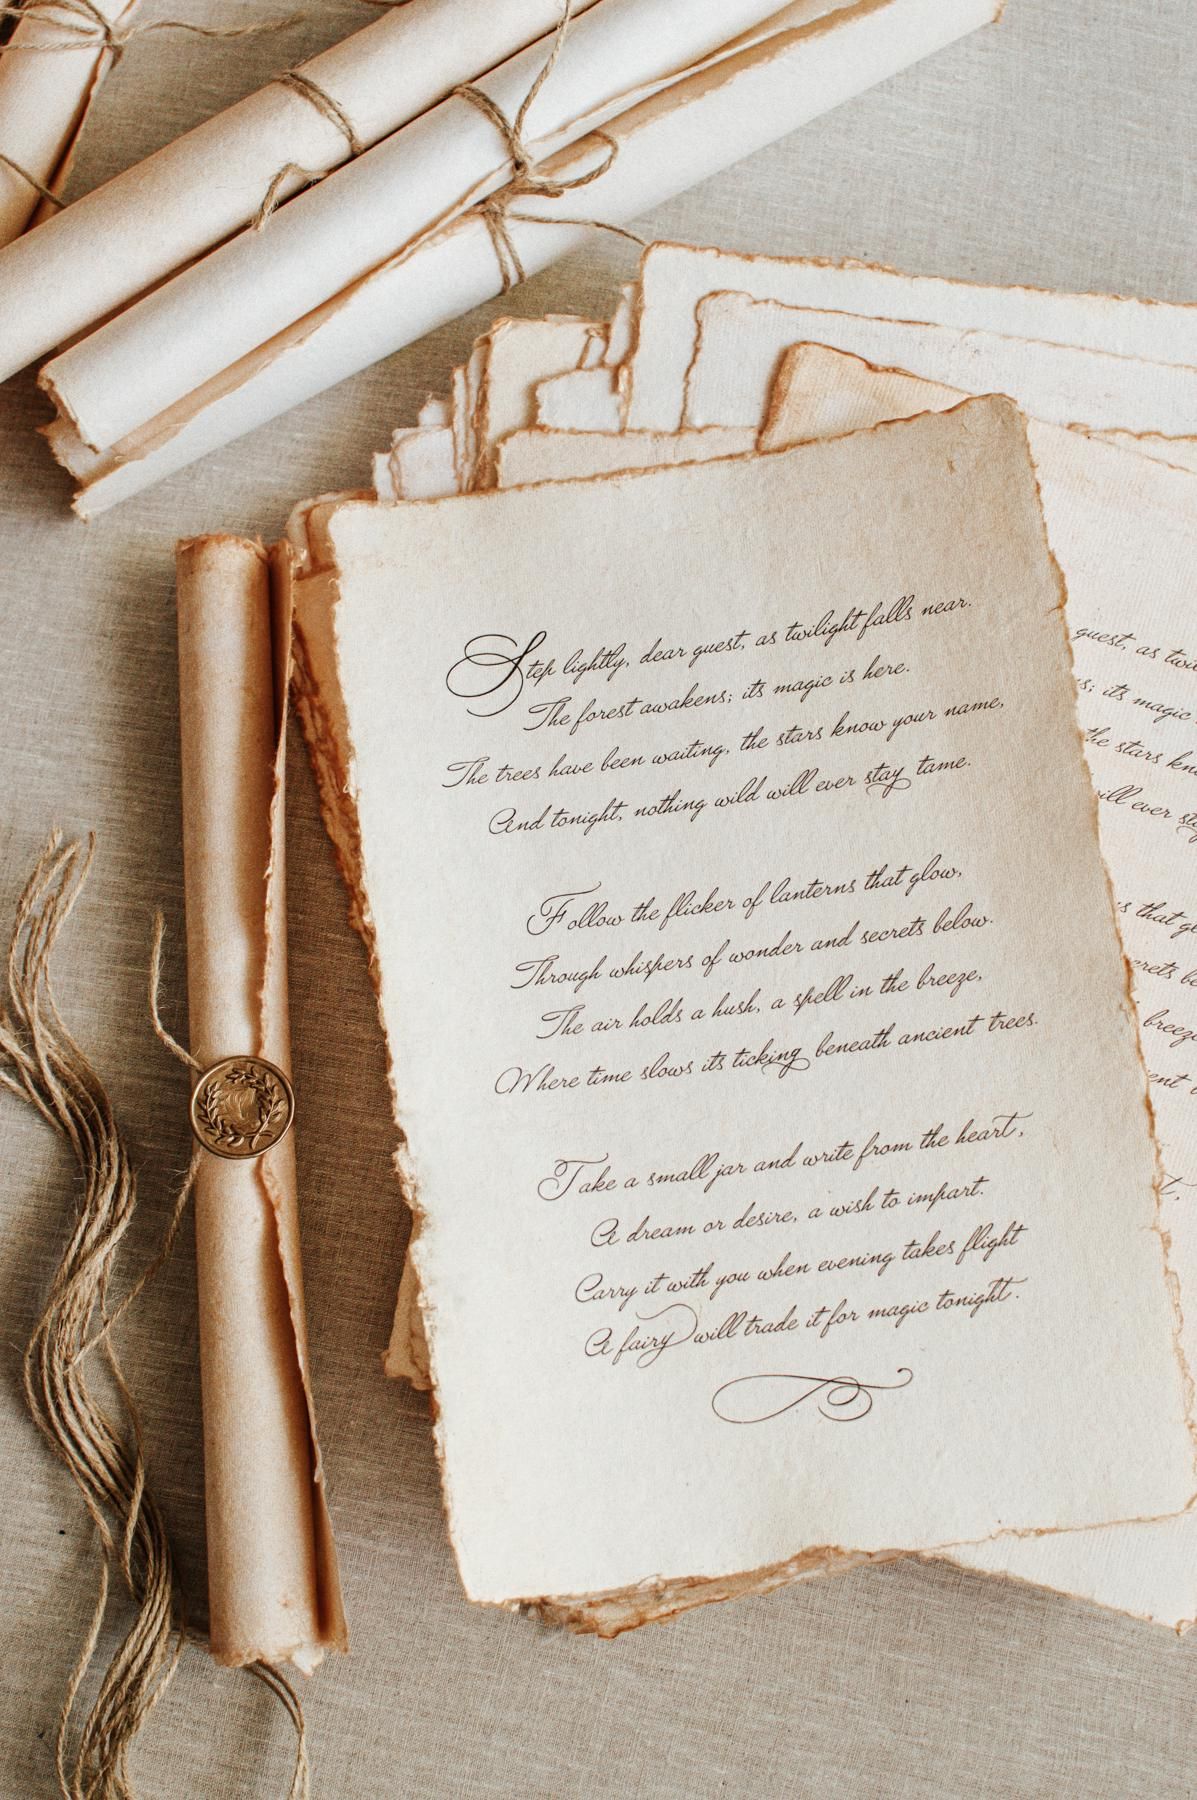 Step lightly, dear guest, as twilight falls near.
The forest awakens; its magic is here.
The trees have been waiting, the stars know your name,
And tonight, nothing wild will ever stay tame.
Follow the flicker of lanterns that glow,
Through whispers of wonder and secrets below.
The air holds a hush, a spell in the breeze,
Where time slows its ticking beneath ancient trees.
Take a small jar and write from the heart,
A dream or desire, a wish to impart.
Carry it with you when evening takes flight
A fairy will trade it for magic tonight.
guest, as
its magic
the stars
will ever
that
breeze